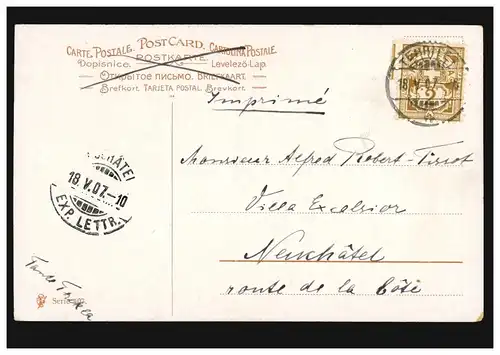 CARTE POSTALE. POST CARD. CARTOLINA POSTALE.
Dopisnice. POSTKARTE. Levelező-Lap.
ОТКРЫТОЕ ПИСЬМО. BRIEFKAART.
Brefkort. TARJETA POSTAL. Brevkort.
Imprimé
Monsieur Alfred Robert-Tissot
Villa Excelsior
Neuchâtel
route de la Côte
18.V.07.-10
EXP. LETTR.
Tante
Serie